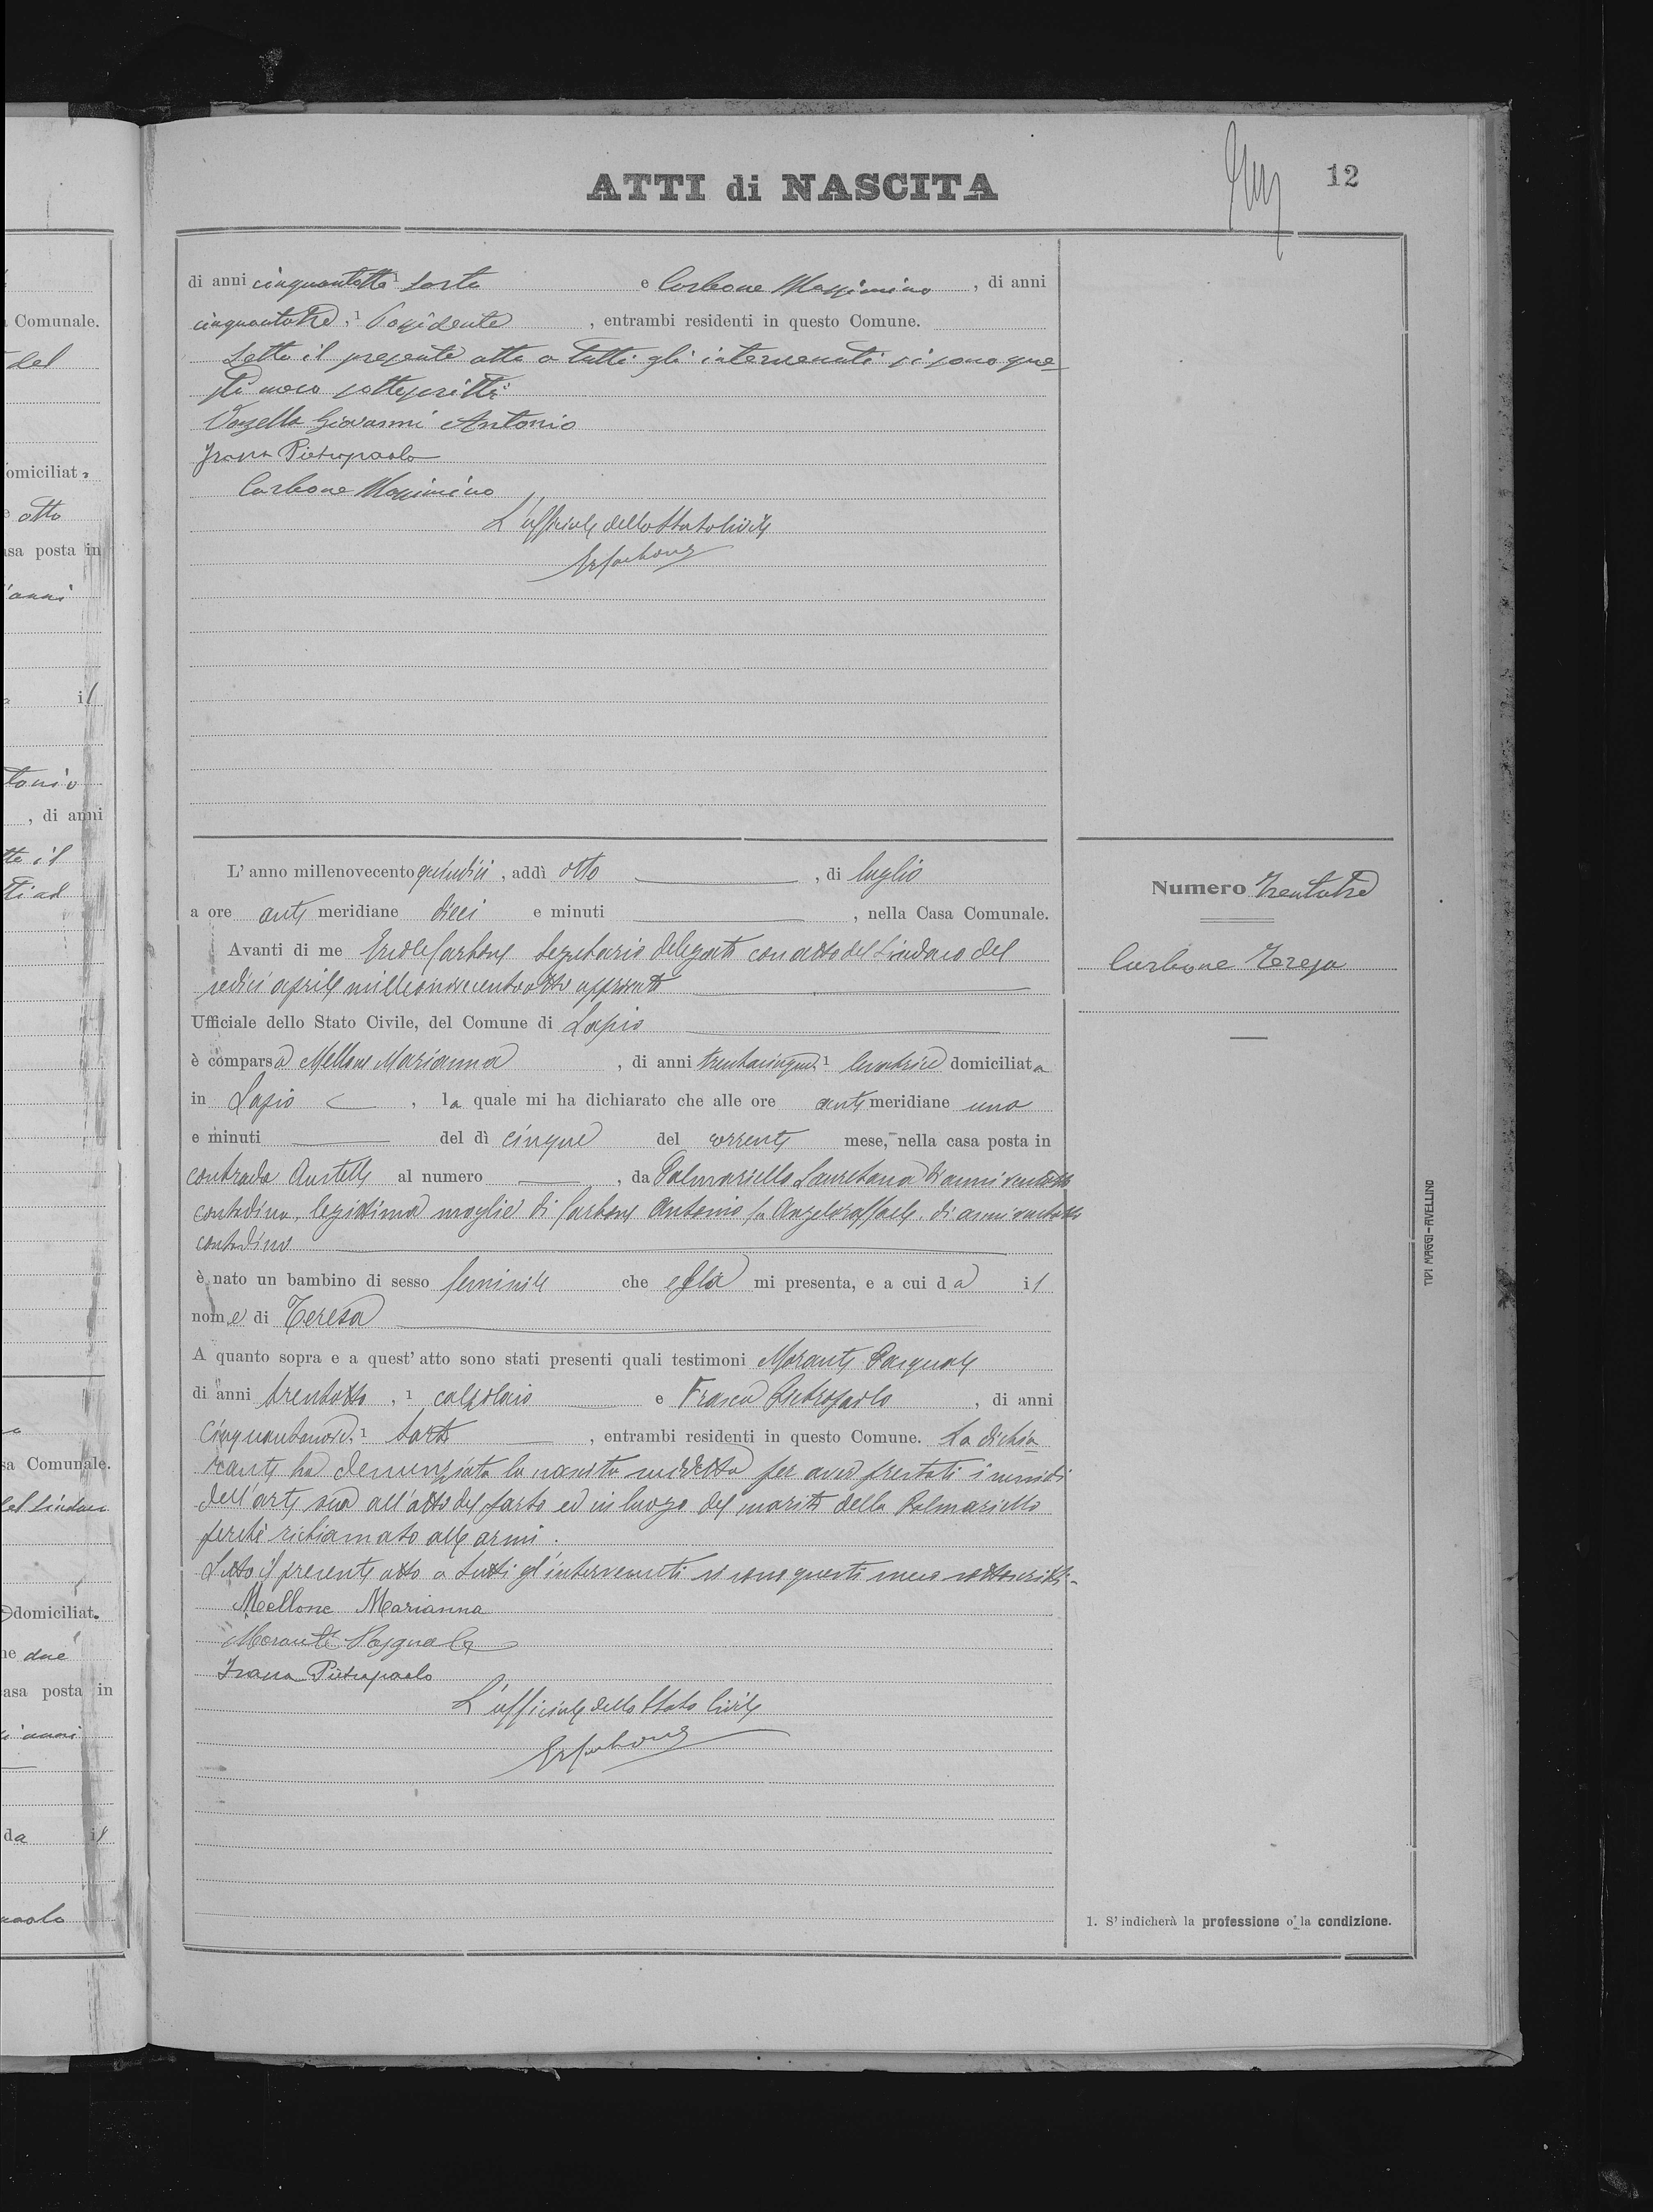 ATTI di NASCITA
12
di anni cinquantotto ¹ sarto e Carbone Massimino, di anni
cinquantatre, ¹ Possidente, entrambi residenti in questo Comune.
Letto il presente atto a tutti gli intervenuti si sono que
sti meco sottoscritti
Giovanni Antonio
Pietropaolo
Carbone Massimino
L'ufficiale dello Stato Civile
L'anno millenovecento quindici, addì otto, di luglio
a ore anti meridiane dieci e minuti, nella Casa Comunale.
Avanti di me Ercole Carbone Segretario delegato con atto del Sindaco del
sedici aprile millenovecentootto approvato
Ufficiale dello Stato Civile, del Comune di Lapio
è comparsa Mellone Marianna, di anni trentacinque, ¹ levatrice domiciliata
in Lapio, la quale mi ha dichiarato che alle ore anti meridiane una
e minuti del dì cinque del corrente mese, nella casa posta in
contrada al numero, da Palmariello Lauretana di anni ventotto
contadina, legittima moglie di Carbone Antonio fu Angeloraffaele, di anni
contadino
è nato un bambino di sesso feminile che essa mi presenta, e a cui da il
nome di Teresa
A quanto sopra e a quest'atto sono stati presenti quali testimoni Morante Pasquale
di anni trentotto, ¹ calzolaio e Pietropaolo, di anni
cinquantanove, ¹ sarto, entrambi residenti in questo Comune. La dichia
rante ha denunziata la nascita suddetta per aver prestati i sussidi
dell'arte sua all'atto del parto ed in luogo del marito della Palmariello
perchè richiamato alle armi.
Letto il presente atto a tutti gl'intervenuti si sono questi meco sottoscritti.
Mellone Marianna
Morante Pasquale
Pietropaolo
L'ufficiale dello Stato Civile
Numero Trentatre
Carbone Teresa
1. S'indicherà la professione o la condizione.
TIPI MAGGI-AVELLINO
Comunale.
del
omiciliat
otto
asa posta in
anni
il
tonio
, di anni
tto il
sa Comunale.
domiciliat
ne due
asa posta in
anni
da il
paolo